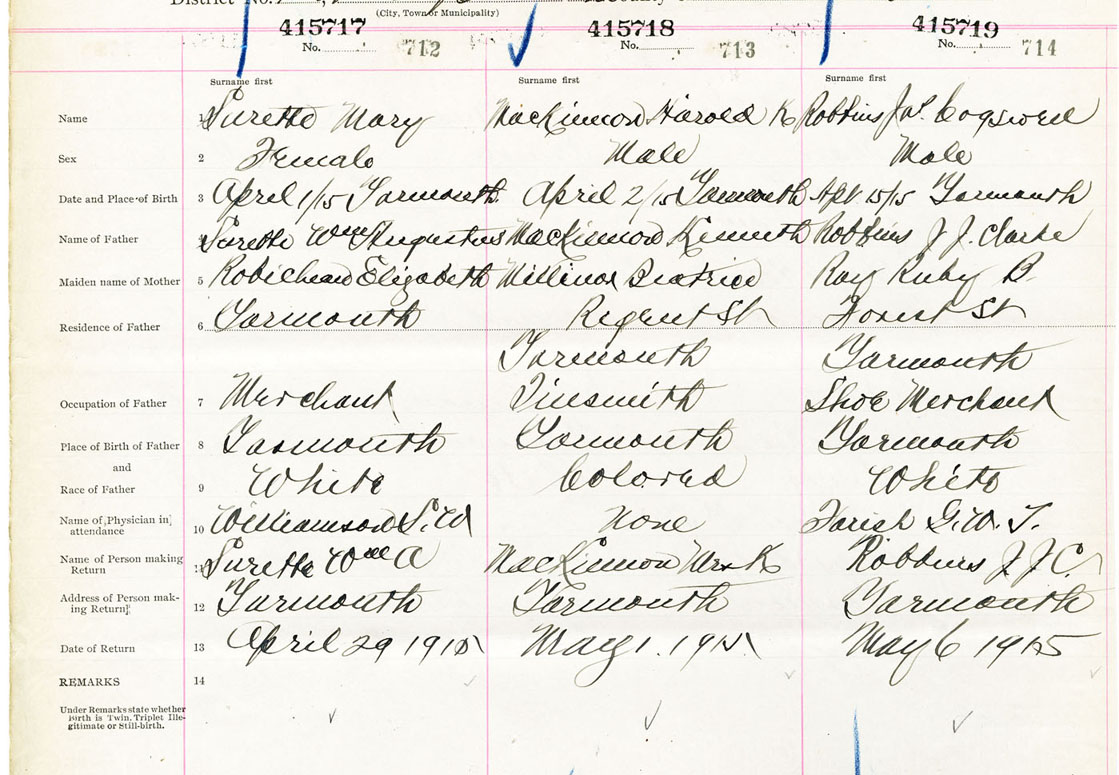 District No.
(City, Town or Municipality)
415717 415718 415719
No. 712 No. 713 No. 714
Surname first Surname first Surname first
Name 1 Surette Mary MacKinnon Harold K Robbins Jas. Cogswell
Sex 2 Female Male Male
Date and Place of Birth 3 April 1/15 Yarmouth April 2/15 Yarmouth Apl 15/15 Yarmouth
Name of Father 4 Surette Wm Augustus MacKinnon Kenneth Robbins J J. Clarke
Maiden name of Mother 5 Robicheau Elizabeth Beatrice Ray Ruby B.
Residence of Father 6 Yarmouth Regent St Forest St
Yarmouth Yarmouth
Occupation of Father 7 Merchant Tinsmith Shoe Merchant
Place of Birth of Father 8 Yarmouth Yarmouth Yarmouth
and
Race of Father 9 White Colored White
Name of [Physician in] attendance 10 Williamson S. W None Farish G. W. T.
Name of Person making Return 11 Surette Wm A MacKinnon Mrs K Robbins J J. C.
Address of Person making Return 12 Yarmouth Yarmouth Yarmouth
Date of Return 13 April 29 1915 May 1. 1915 May 6 1915
REMARKS 14
Under Remarks state whether
Birth is Twin, Triplet Ille-
gitimate or Still-birth.